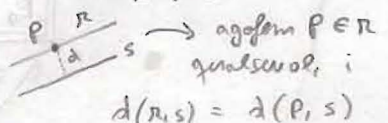 P r
d s → agafem P ∈ r
qualsevol, i
d(r,s) = d(P,s)